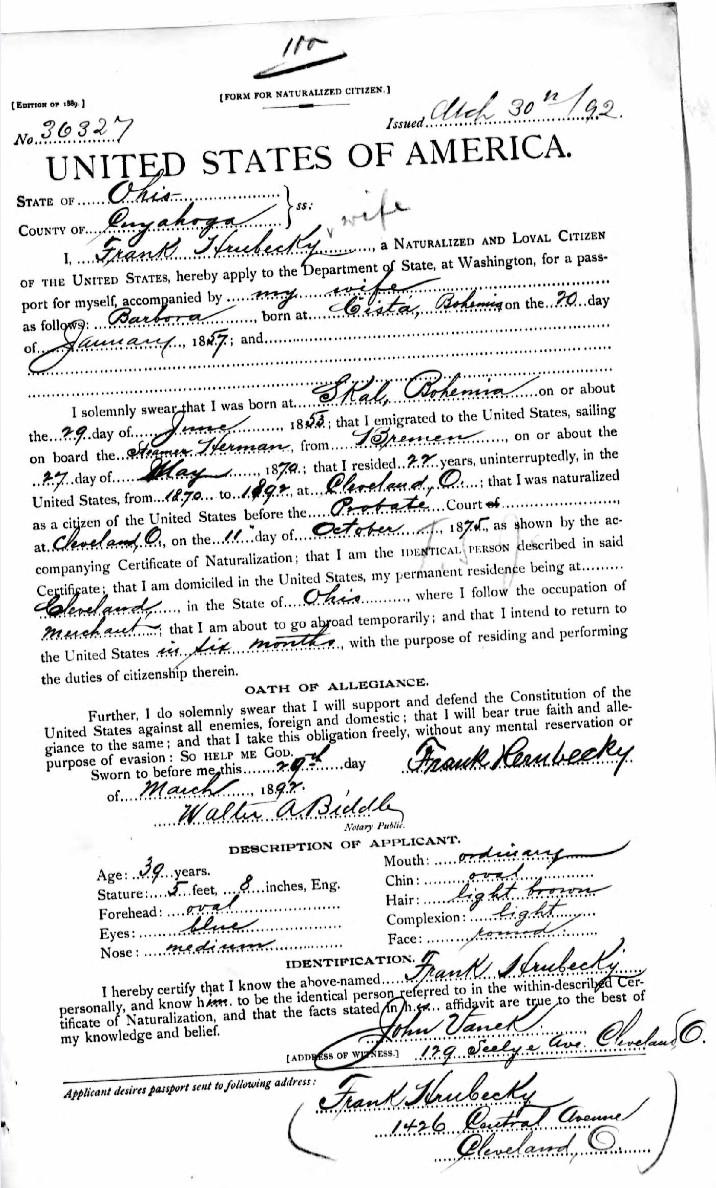 100
[EDITION OF 1889.]
[FORM FOR NATURALIZED CITIZEN.]
No. 36327
Issued Mch 30th /92.
UNITED STATES OF AMERICA.
STATE OF Ohio
COUNTY OF Cuyahoga } ss:
wife
I, Frank Hrubecky, a NATURALIZED AND LOYAL CITIZEN
OF THE UNITED STATES, hereby apply to the Department of State, at Washington, for a pass-
port for myself, accompanied by my wife
as follows: Barbora, born at Cista, Bohemia on the 20 day
of January, 1857; and
I solemnly swear that I was born at Skal, Bohemia on or about
the 29 day of June, 1853; that I emigrated to the United States, sailing
on board the Steamer Herman, from Bremen, on or about the
27 day of May, 1870; that I resided 22 years, uninterruptedly, in the
United States, from 1870 to 1892 at Cleveland, O.; that I was naturalized
as a citizen of the United States before the Probate Court of
at Cleveland, O., on the 11" day of October, 1875, as shown by the ac-
companying Certificate of Naturalization; that I am the IDENTICAL PERSON described in said
Certificate; that I am domiciled in the United States, my permanent residence being at
Cleveland, in the State of Ohio, where I follow the occupation of
Merchant; that I am about to go abroad temporarily; and that I intend to return to
the United States in six months, with the purpose of residing and performing
the duties of citizenship therein.
OATH OF ALLEGIANCE.
Further, I do solemnly swear that I will support and defend the Constitution of the
United States against all enemies, foreign and domestic; that I will bear true faith and alle-
giance to the same; and that I take this obligation freely, without any mental reservation or
purpose of evasion: SO HELP ME GOD.
Sworn to before me this 29th day
Frank Hrubecky
of March, 1892.
Walter A Biddle
Notary Public.
DESCRIPTION OF APPLICANT.
Age: 39 years.
Mouth: ordinary
Stature: 5 feet, 8 inches, Eng.
Chin: oval
Forehead: oval
Hair: light brown
Eyes: blue
Complexion: light
Nose: medium
Face: round
IDENTIFICATION.
I hereby certify that I know the above-named Frank Hrubecky
personally, and know him to be the identical person referred to in the within-described Cer-
tificate of Naturalization, and that the facts stated in h is affidavit are true to the best of
my knowledge and belief.
John Vanek
[ADDRESS OF WITNESS.] 129 Seelye Ave. Cleveland, O.
Applicant desires passport sent to following address:
Frank Hrubecky
1426 Central Avenue
Cleveland, O.